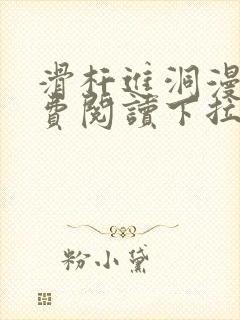 滑杆进洞漫
费阅读下拉
粉小黛